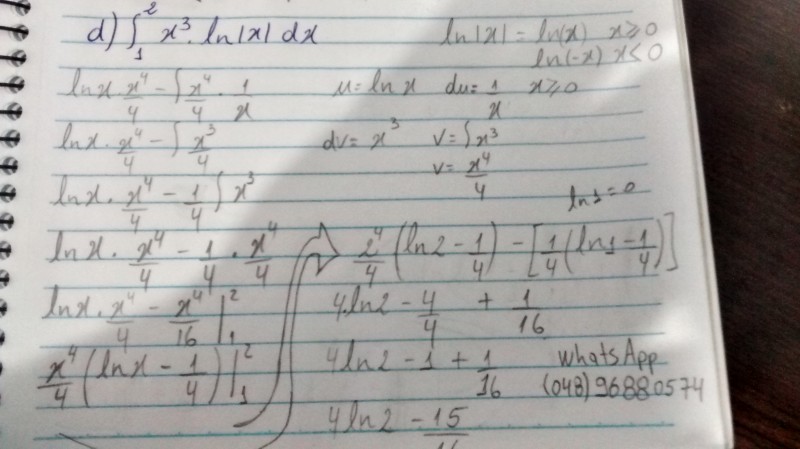 d) ∫₁² x³. ln|x| dx
ln|x| = ln(x) x≥0
ln(-x) x<0
lnx. x⁴/4 - ∫ x⁴/4 . 1/x
u = ln x du = 1/x x≥0
lnx. x⁴/4 - ∫ x³/4
dv = x³ v = ∫x³
v = x⁴/4
lnx. x⁴/4 - 1/4 ∫ x³
ln1 = 0
lnx. x⁴/4 - 1/4 . x⁴/4
lnx. x⁴/4 - x⁴/16 |₁²
x⁴/4 (lnx - 1/4) |₁²
2⁴/4 (ln2 - 1/4) - [1/4 (ln1 - 1/4)]
4.ln2 - 4/4 + 1/16
4ln2 - 1 + 1/16
whatsApp
(048) 96880574
4ln2 - 15/16